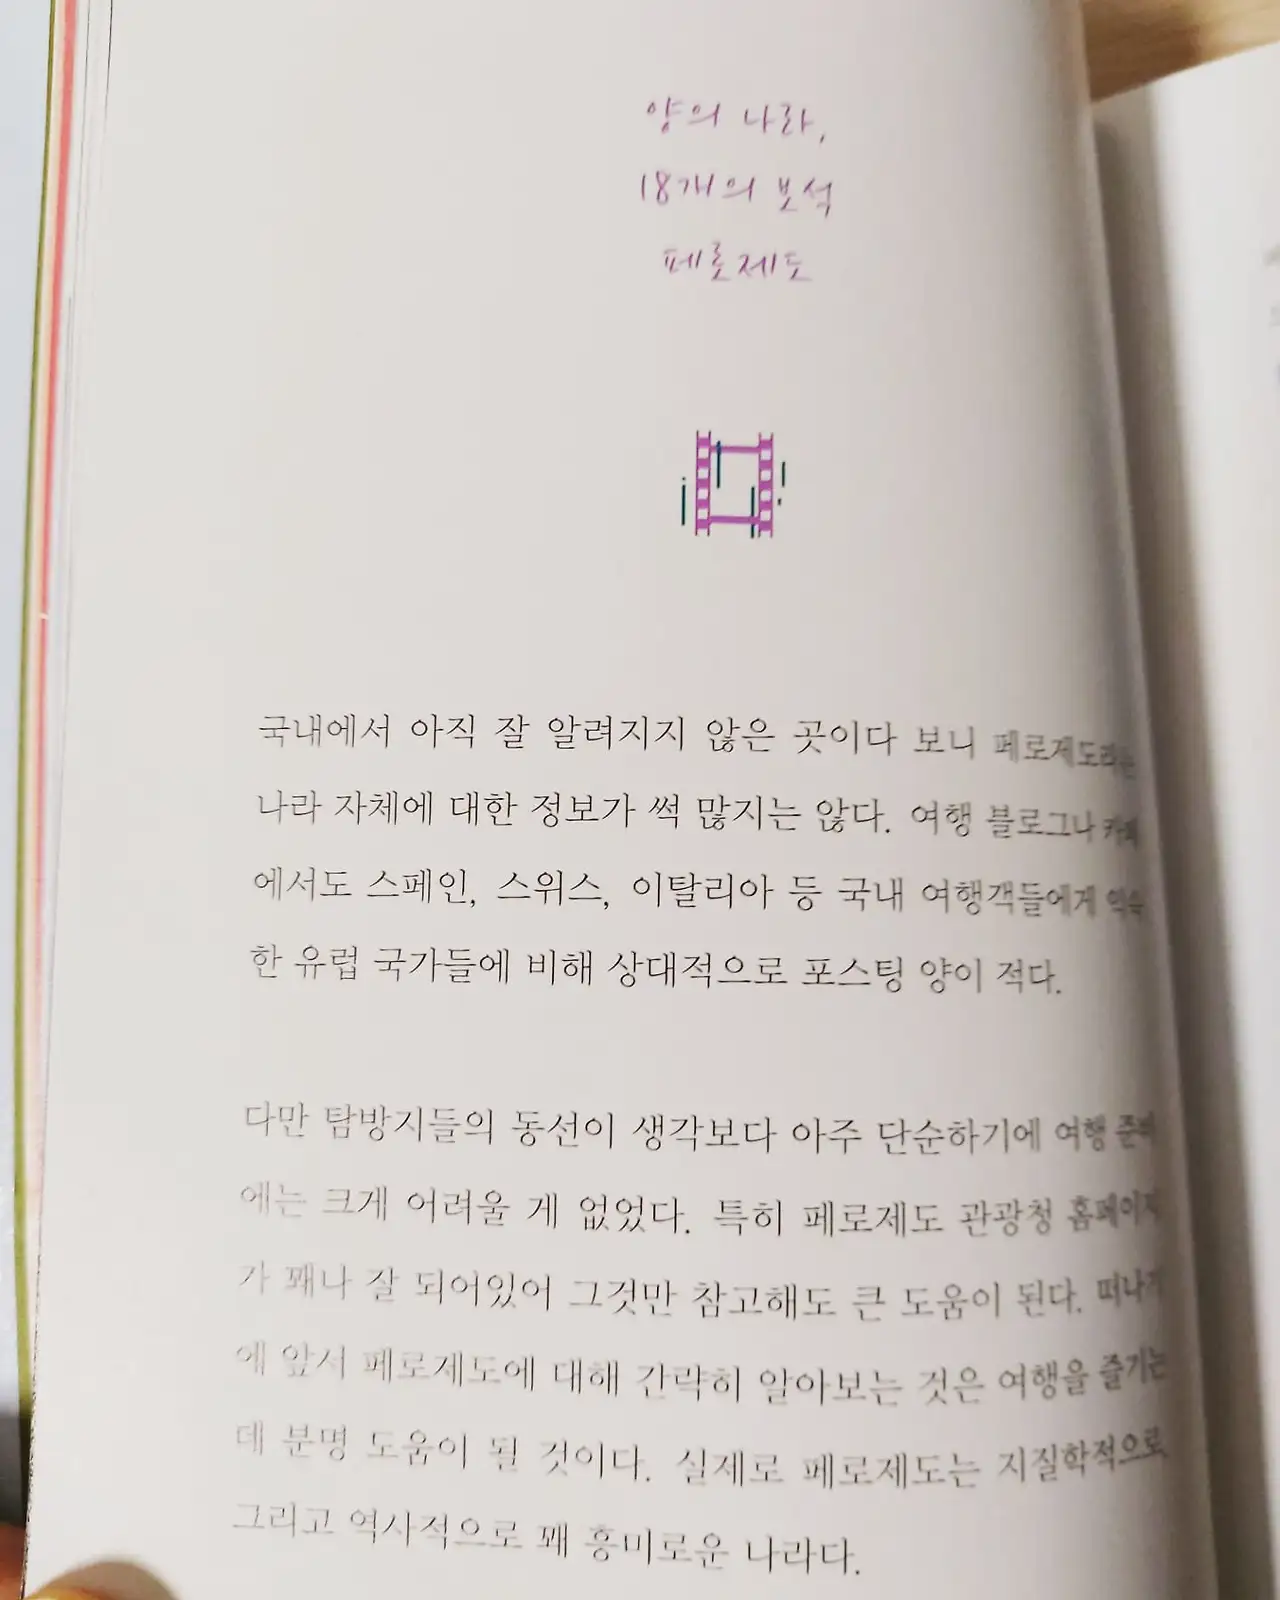 양의 나라,
18개의 보석
페로제도
국내에서 아직 잘 알려지지 않은 곳이다 보니 페로제도라는
나라 자체에 대한 정보가 썩 많지는 않다. 여행 블로그나 카페
에서도 스페인, 스위스, 이탈리아 등 국내 여행객들에게 익숙
한 유럽 국가들에 비해 상대적으로 포스팅 양이 적다.
다만 탐방지들의 동선이 생각보다 아주 단순하기에 여행 준비
에는 크게 어려울 게 없었다. 특히 페로제도 관광청 홈페이지
가 꽤나 잘 되어있어 그것만 참고해도 큰 도움이 된다. 떠나기
에 앞서 페로제도에 대해 간략히 알아보는 것은 여행을 즐기는
데 분명 도움이 될 것이다. 실제로 페로제도는 지질학적으로
그리고 역사적으로 꽤 흥미로운 나라다.